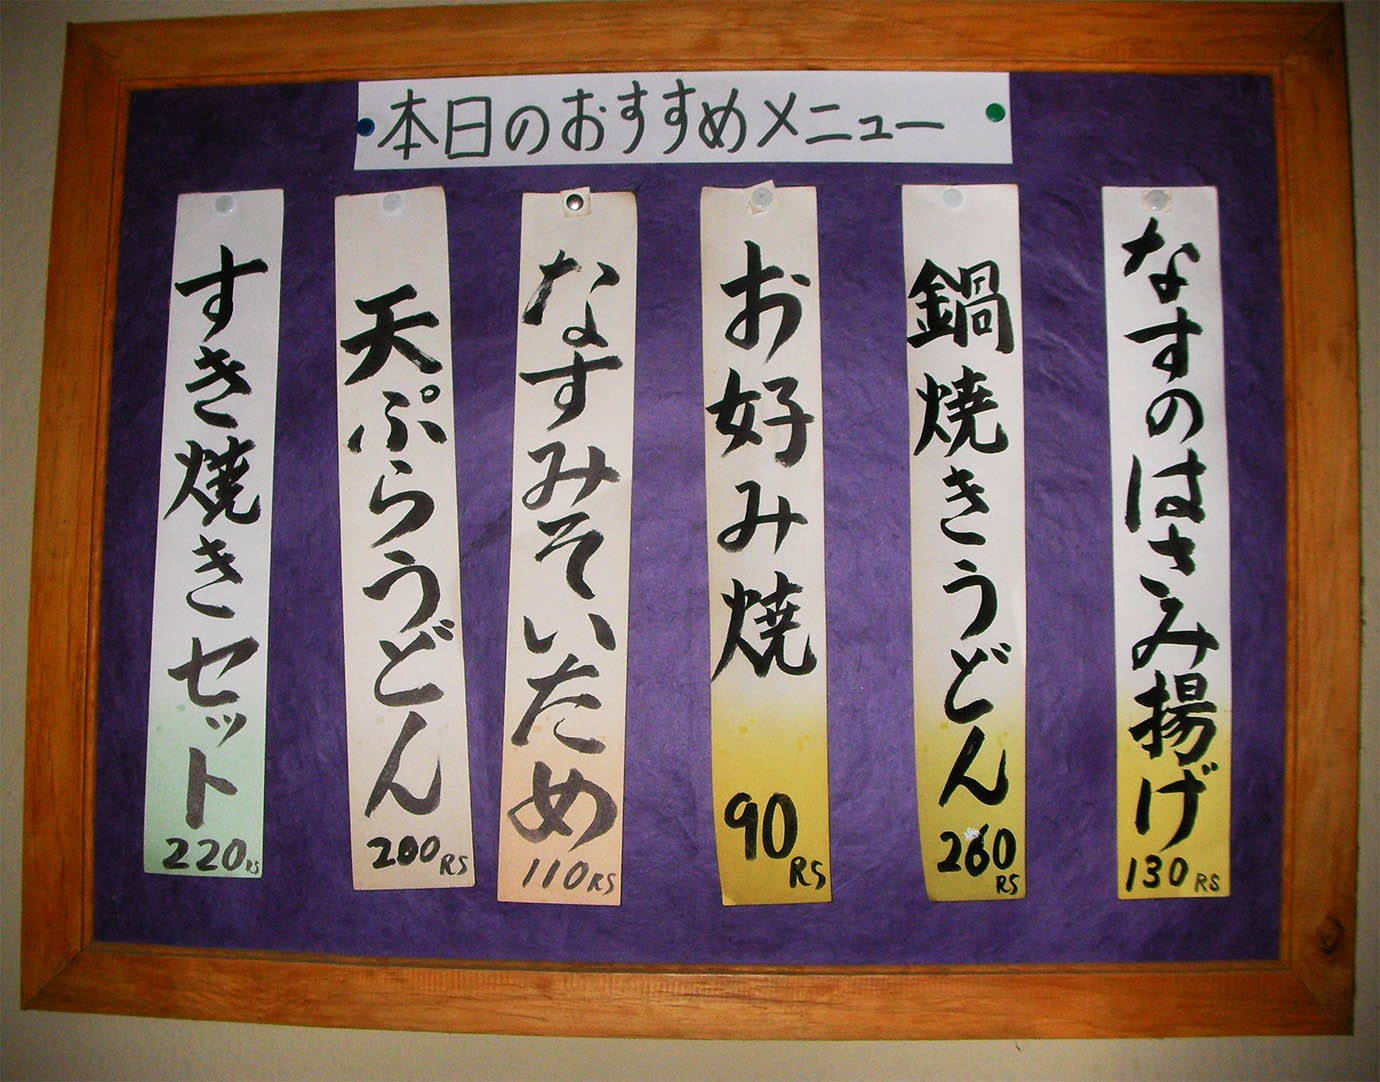 本日のおすすめメニュー
なすのはさみ揚げ
130 RS
鍋焼きうどん
260 RS
お好み焼
90 RS
なすみそいため
110 RS
天ぷらうどん
200 RS
すき焼きセット
220 RS